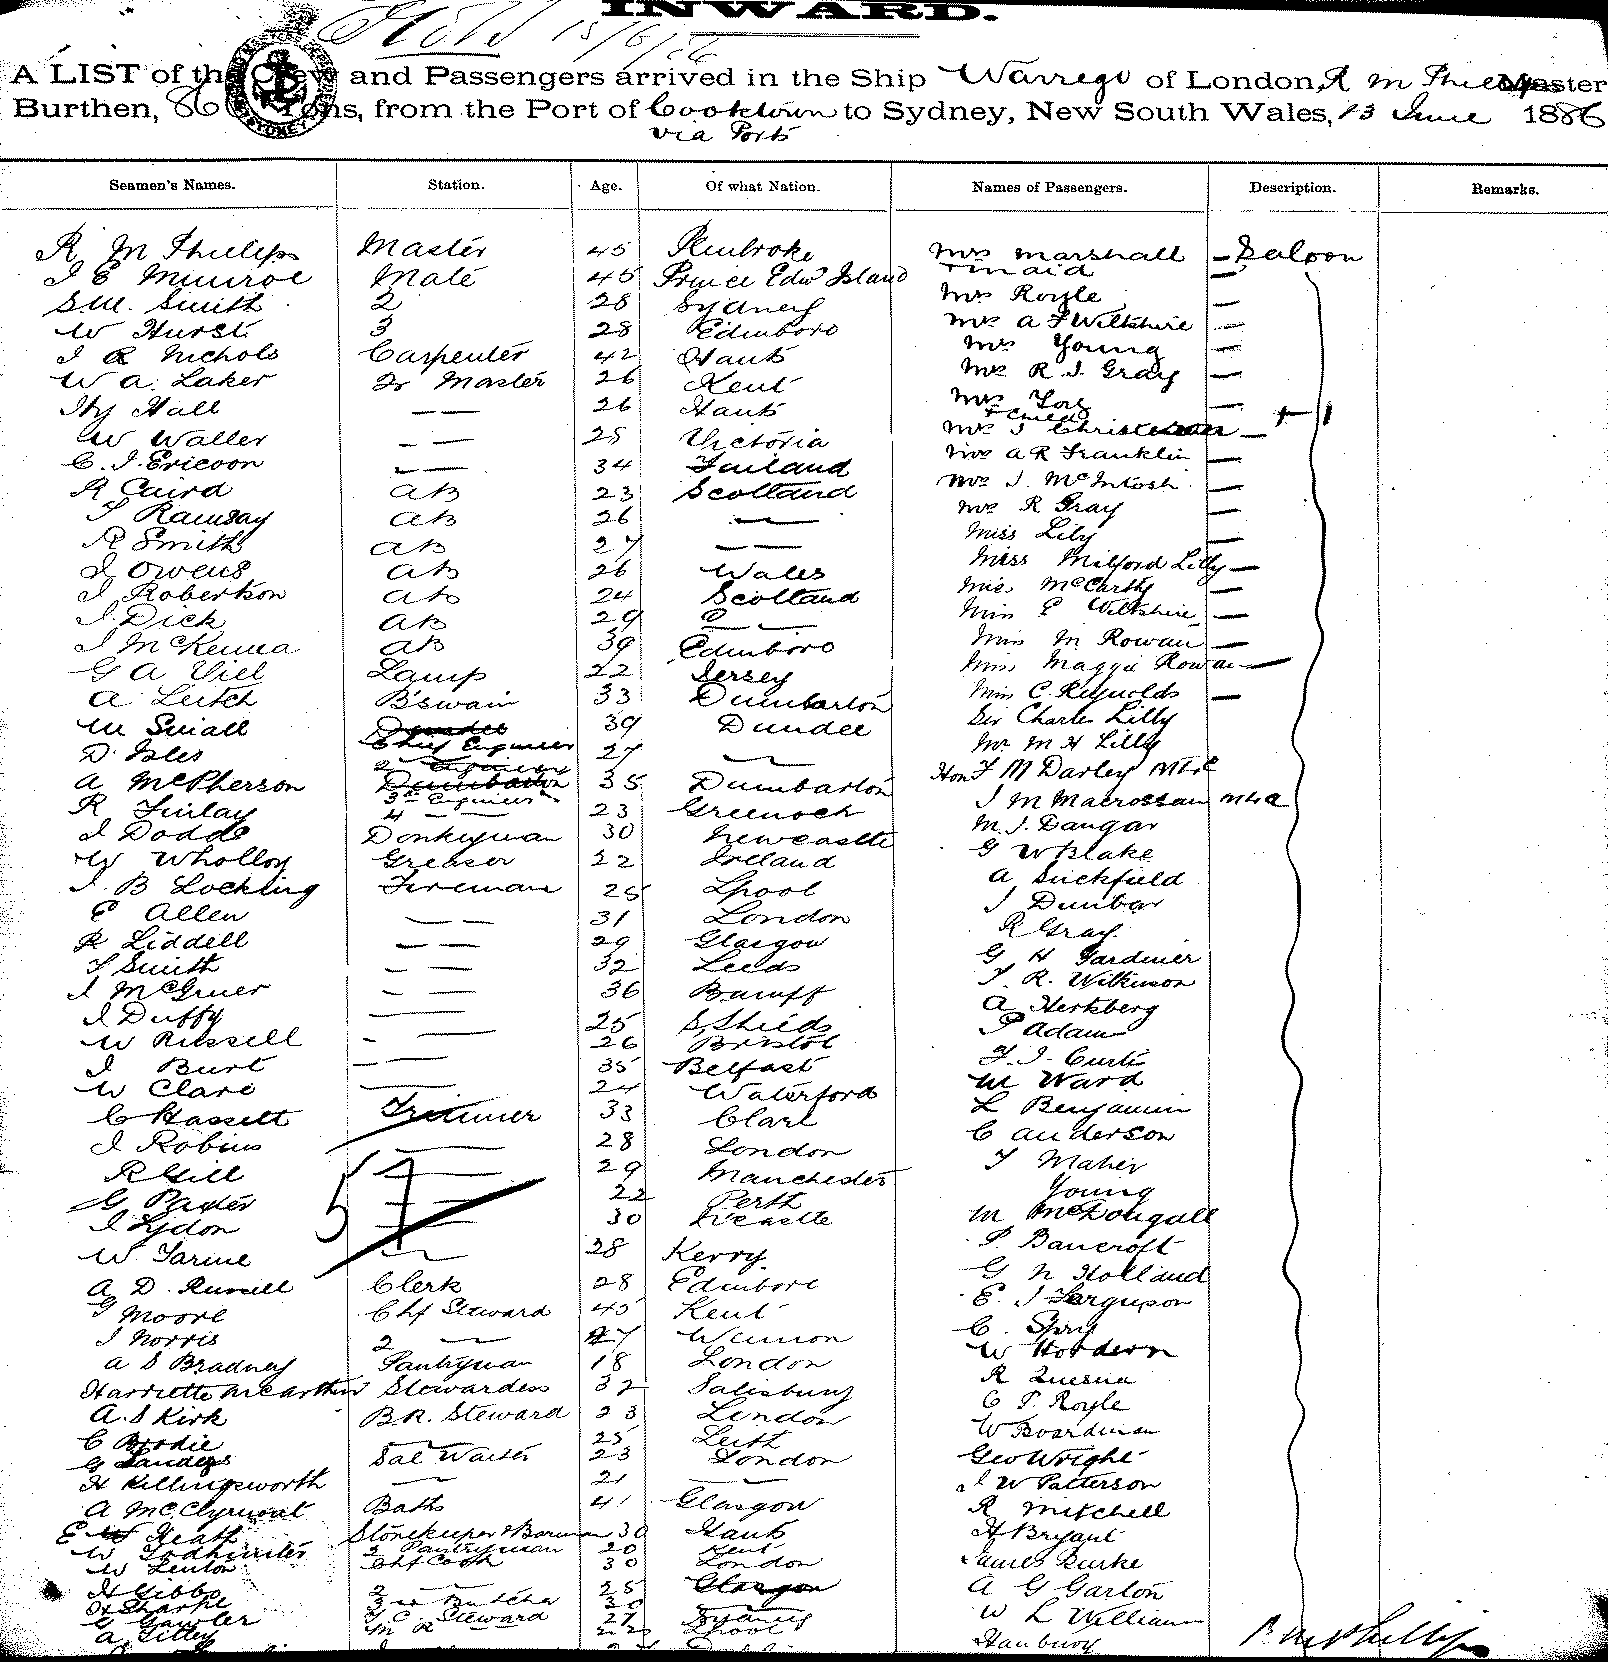 INWARD.
15/6/86
A LIST of the Crew and Passengers arrived in the Ship Warrego of London, R M Phillips Master
Burthen, 860 Tons, from the Port of Cooktown to Sydney, New South Wales, 13 June 1886
via Ports
Seamen's Names. Station. Age. Of what Nation. Names of Passengers. Description. Remarks.
R M Phillips Master 45 Pembroke Mrs Marshall — Saloon
J E Munroe Mate 45 Prince Edw Island + maid —
S.W. Smith 2 28 Sydney Mrs Royle —
W Hurst 3 28 Edinboro Mrs A F Wiltshire —
J R Nichols Carpenter 42 Hants Mrs Young —
W A. Laker Qr Master 26 Kent Mrs R. J. Gray —
Hy Hall — — 26 Hants Mrs —
+ child
W Waller — — 28 Victoria Mrs J —
C. J. Ericson — — 34 Finland Mrs A R Franklin —
R Caird AB 23 Scotland Mrs J. McIntosh —
T Ramsay AB 26 — Mrs R Gray —
R Smith AB 27 — — Miss Lily —
J Owens AB 26 Wales Miss Milford Lilly —
J Robertson AB 24 Scotland Miss McCarthy —
J. Dick AB 29 — Miss E Wiltshire —
J McKenna AB 39 Edinboro Miss M Rowan —
G A Viel Lamps 22 Jersey Miss Maggie Rowan —
A Leitch B'swain 33 Dumbarton Miss C. Reynolds —
W Small Chief Engineer 39 Dundee Sir Charles Lilly
D. Isles 2 Engineer 27 — Mr M H Lilly
A McPherson 3rd Engineer 35 Dumbarton Hon F M Darley MLC
R Finlay 4 — 23 Greenock J M Macrossan MLA
J Dodds Donkeyman 30 Newcastle M. J. Dangar
W Wholloy Greaser 22 Ireland G W Blake
J. B Locking Fireman 25 Lpool A Suckfield
E Allen — — 31 London J Dunbar
R Liddell — — 29 Glasgow R Gray
T Smith — — 32 Leeds G H Gardiner
J McGruer — — 36 Bamff T. R. Wilkinson
J Duffy — 25 S Shields A Hertzberg
W Russell - — 26 Bristol P Adam
J Burt — — 35 Belfast F. J. Curtis
W Clare — 24 Waterford W Ward
C Hassett Trimmer 33 Clare L Benjamin
J Robins — 28 London C Anderson
R Gill — 29 Manchester T Maher
G — 22 Perth Young
J Lydon — 30 N'castle M McDougall
W. — 28 Kerry P. Bancroft
A D. Russell Clerk 28 Edinboro G N Holland
G Moore Chf Steward 45 Kent E. J Ferguson
J Norris 2 — 27 C. Spry
A S Bradney Pantryman 18 London W Hordern
Harriette McArthur Stewardess 32 Salisbury R Quesna
A. S Kirk BR. Steward 23 London C P. Royle
C Brodie — 25 Leith W Boardman
G Sanders Sal Waiter 23 London Geo Wright
H Killingsworth — 21 — J W Patterson
A McClymont Bath 41 Glasgow R Mitchell
E Heath Storekeeper & Barman 30 Hants H Bryant
W 2 Pantryman 20 Kent James Burke
W Lenton Chf Cook 30 London
H Gibbs 2 — 25 Glasgow A G Garton
H Sharpe 3 — Butcher 20
G Gawler F.C. Steward 27 Sydney W L Williams
A. Gilley M R 22 Lpool Hanbury
R M Phillips